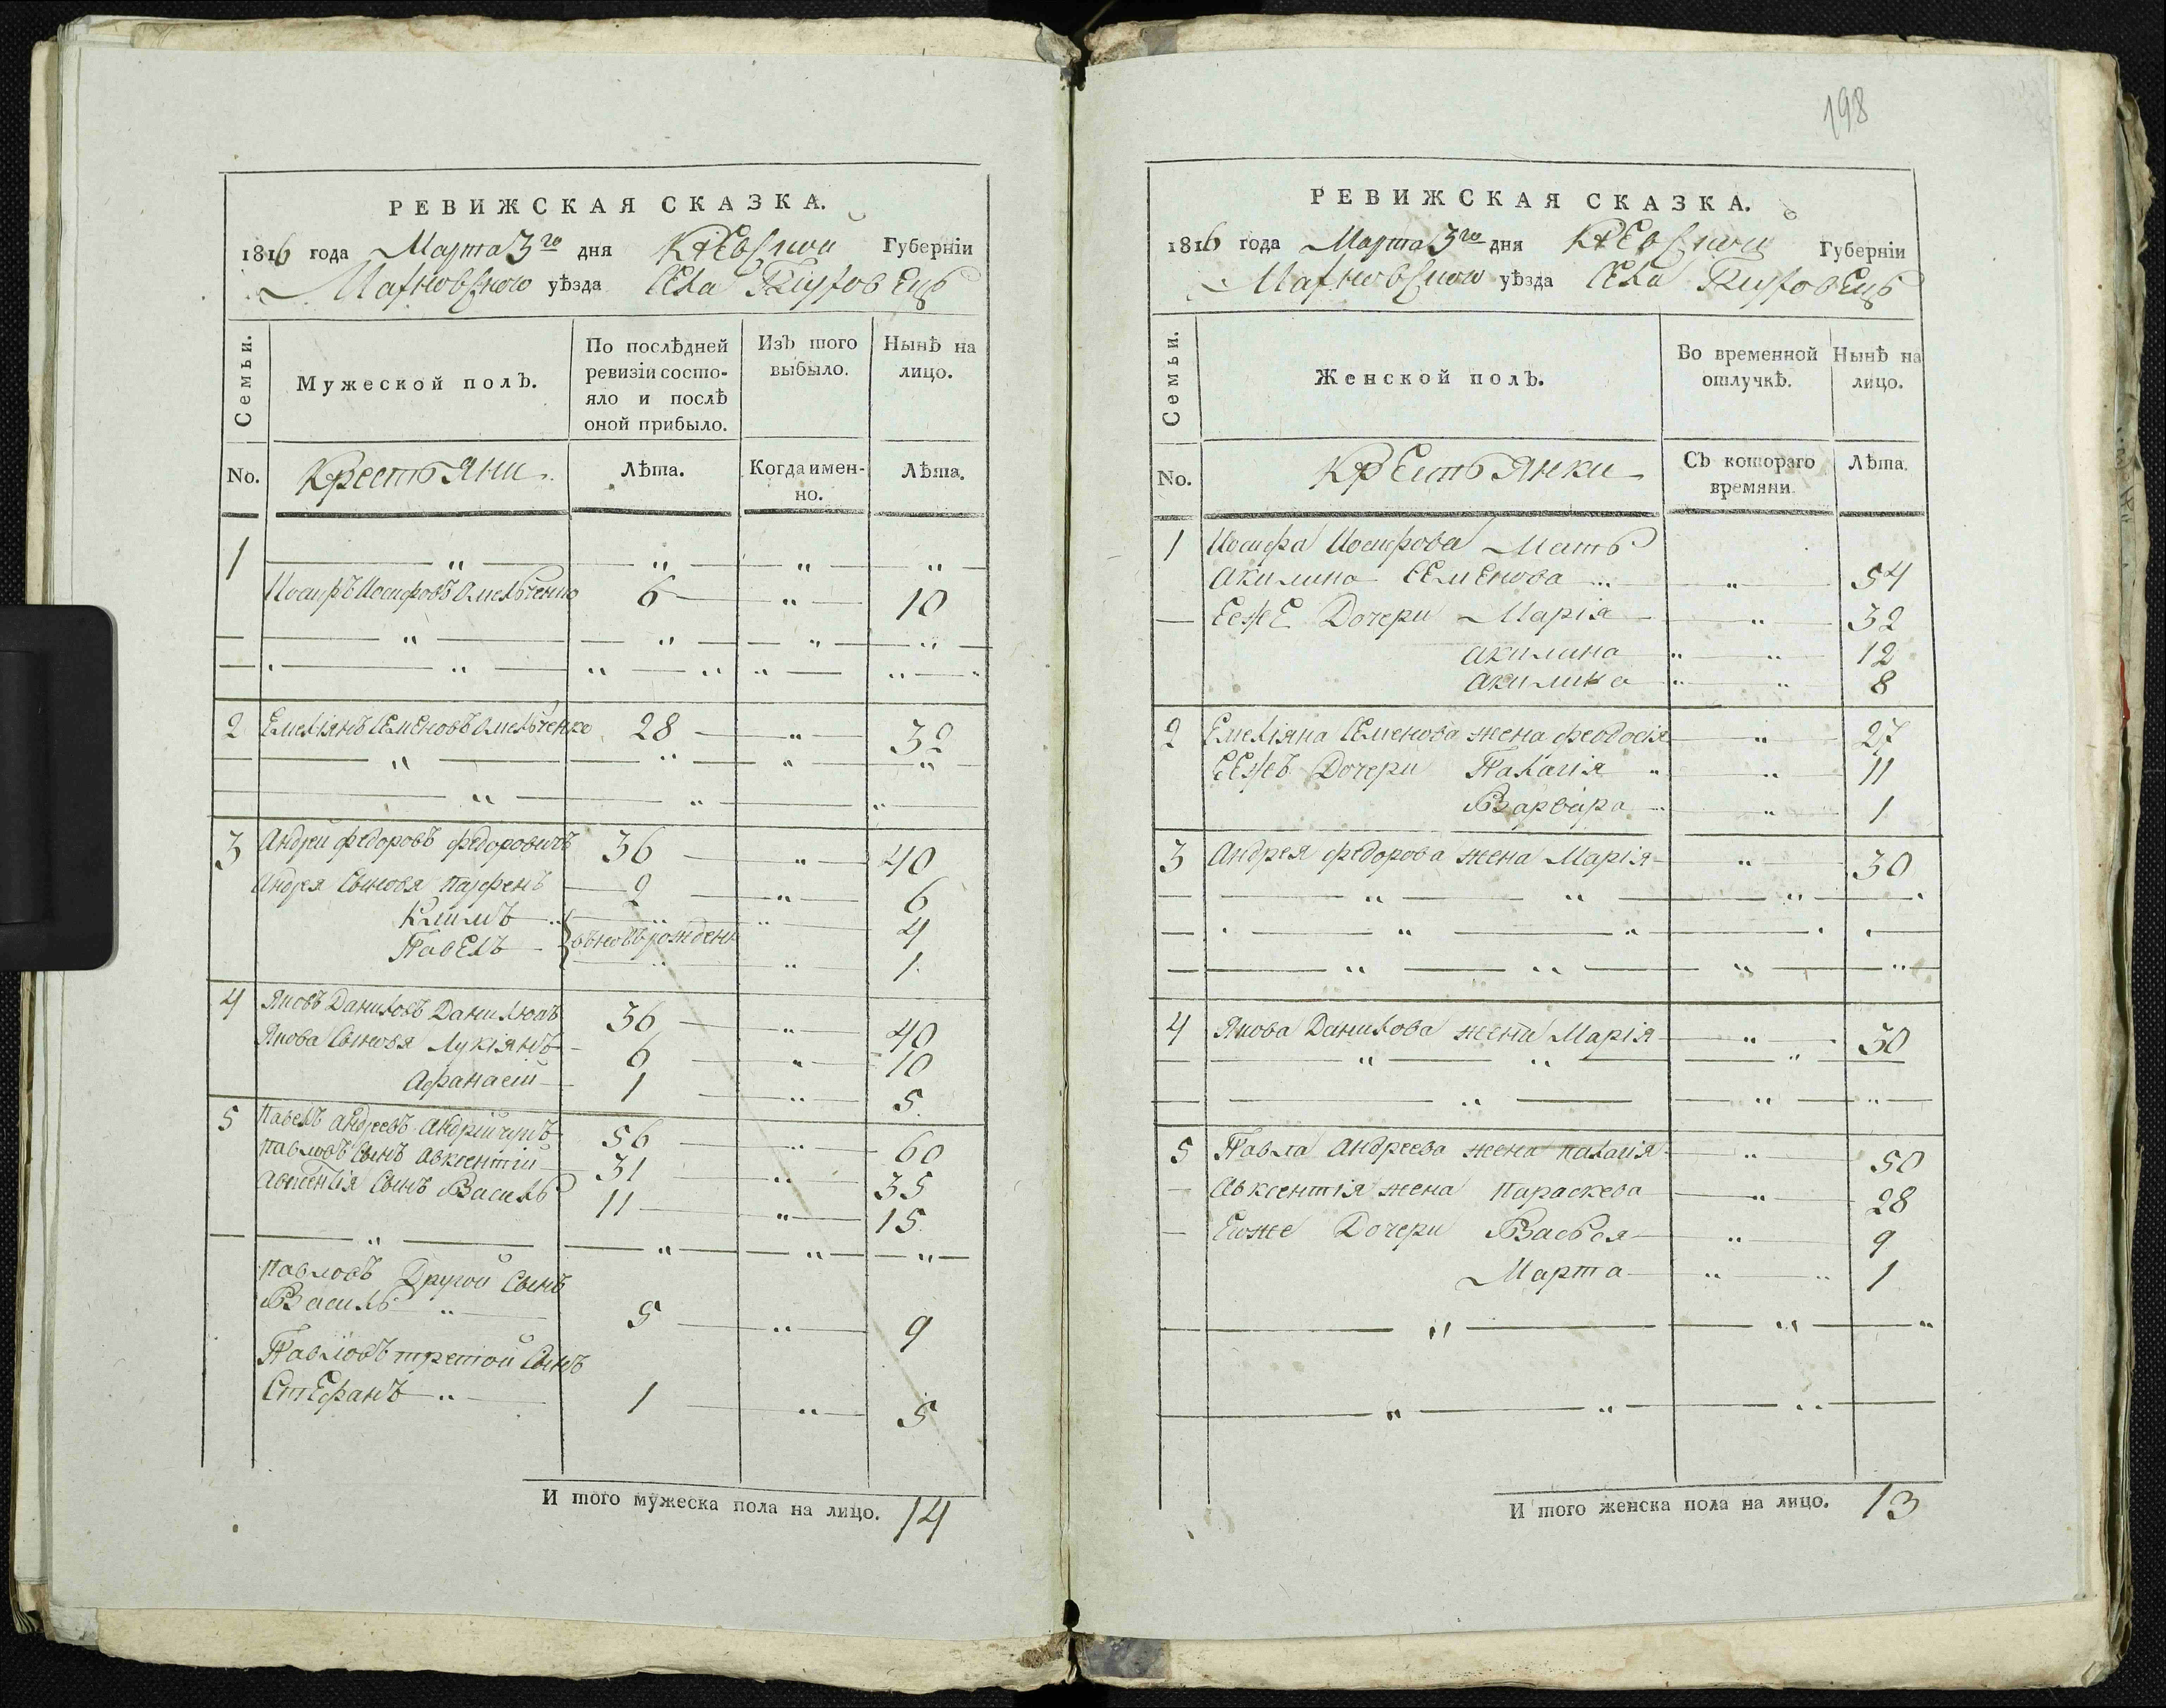 РЕВИЖСКАЯ СКАЗКА.
1816 года Марта 3го дня Кіевской Губерніи
Махновского уѣзда Села
Семьи.
Мужеской полъ.
По послѣдней ревизіи состояло и послѣ оной прибыло.
Изъ того выбыло.
Нынѣ на лицо.
No. Крестьяни Лѣта. Когда именно. Лѣта.
1
Иосифъ Иосифовъ Омельченко 6 " 10
2 Емеліянъ Семеновъ Омельченко 28 " 32
3 Андрей Федоровъ Федоровичъ 36 " 40
Андрея Сыновя Парфенъ 2 " 6
Климъ " 4
Павелъ вновъ рождени " 1
4 Яковъ Даниловъ Данилюкъ 36 " 40
Якова Сыновя Лукіянъ 6 " 10
Афанасій 1 " 5
5 Павелъ Андреевъ 56 " 60
Павловъ Сынъ Авксентій 31 " 35
Авксентія Сынъ Василь 11 " 15
Павловъ Другой Сынъ
Василь 5 " 9
Павловъ третой Сынъ
Стефанъ 1 " 5
И того мужеска пола на лицо. 14
198
РЕВИЖСКАЯ СКАЗКА.
1816 года Марта 3го дня Кіевской Губерніи
Махновского уѣзда Села
Семьи.
Женской полъ.
Во временной отлучкѣ.
Нынѣ на лицо.
No. Крестьянки Съ котораго времяни. Лѣта.
1 Иосифа Иосифова Мать
Акилина Семенова " 54
Еежъ Дочери Марія " 32
Акилина " " 12
Акилина " " 8
2 Емеліяна Семенова жена Феодосія " 27
Еежъ Дочери Палагія " 11
Варвара " 1
3 Андрея Федорова жена Марія " 30
4 Якова Данилова жена Марія " 30
5 Павла Андреева жена Палагія " 50
Авксентія жена Параскева " 28
Еюже Дочери Васься " 9
Марта " " 1
И того женска пола на лицо. 13